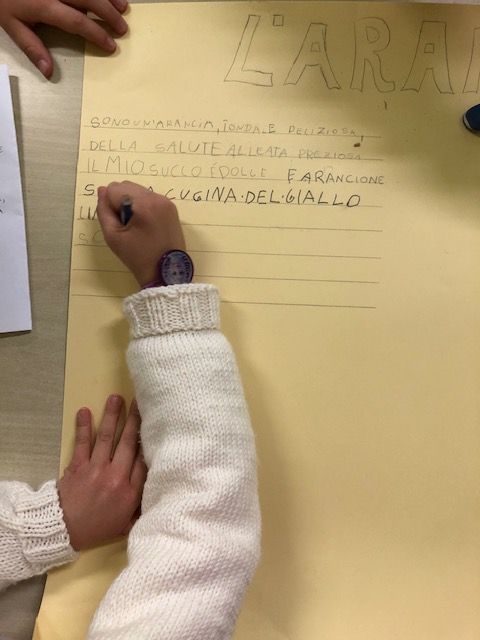 L'ARAN
SONO UN'ARANCIA, TONDA E DELIZIOSA,
DELLA SALUTE ALLEATA PREZIOSA
IL MIO SUCCO È DOLCE E ARANCIONE
CUGINA·DEL·GIALLO